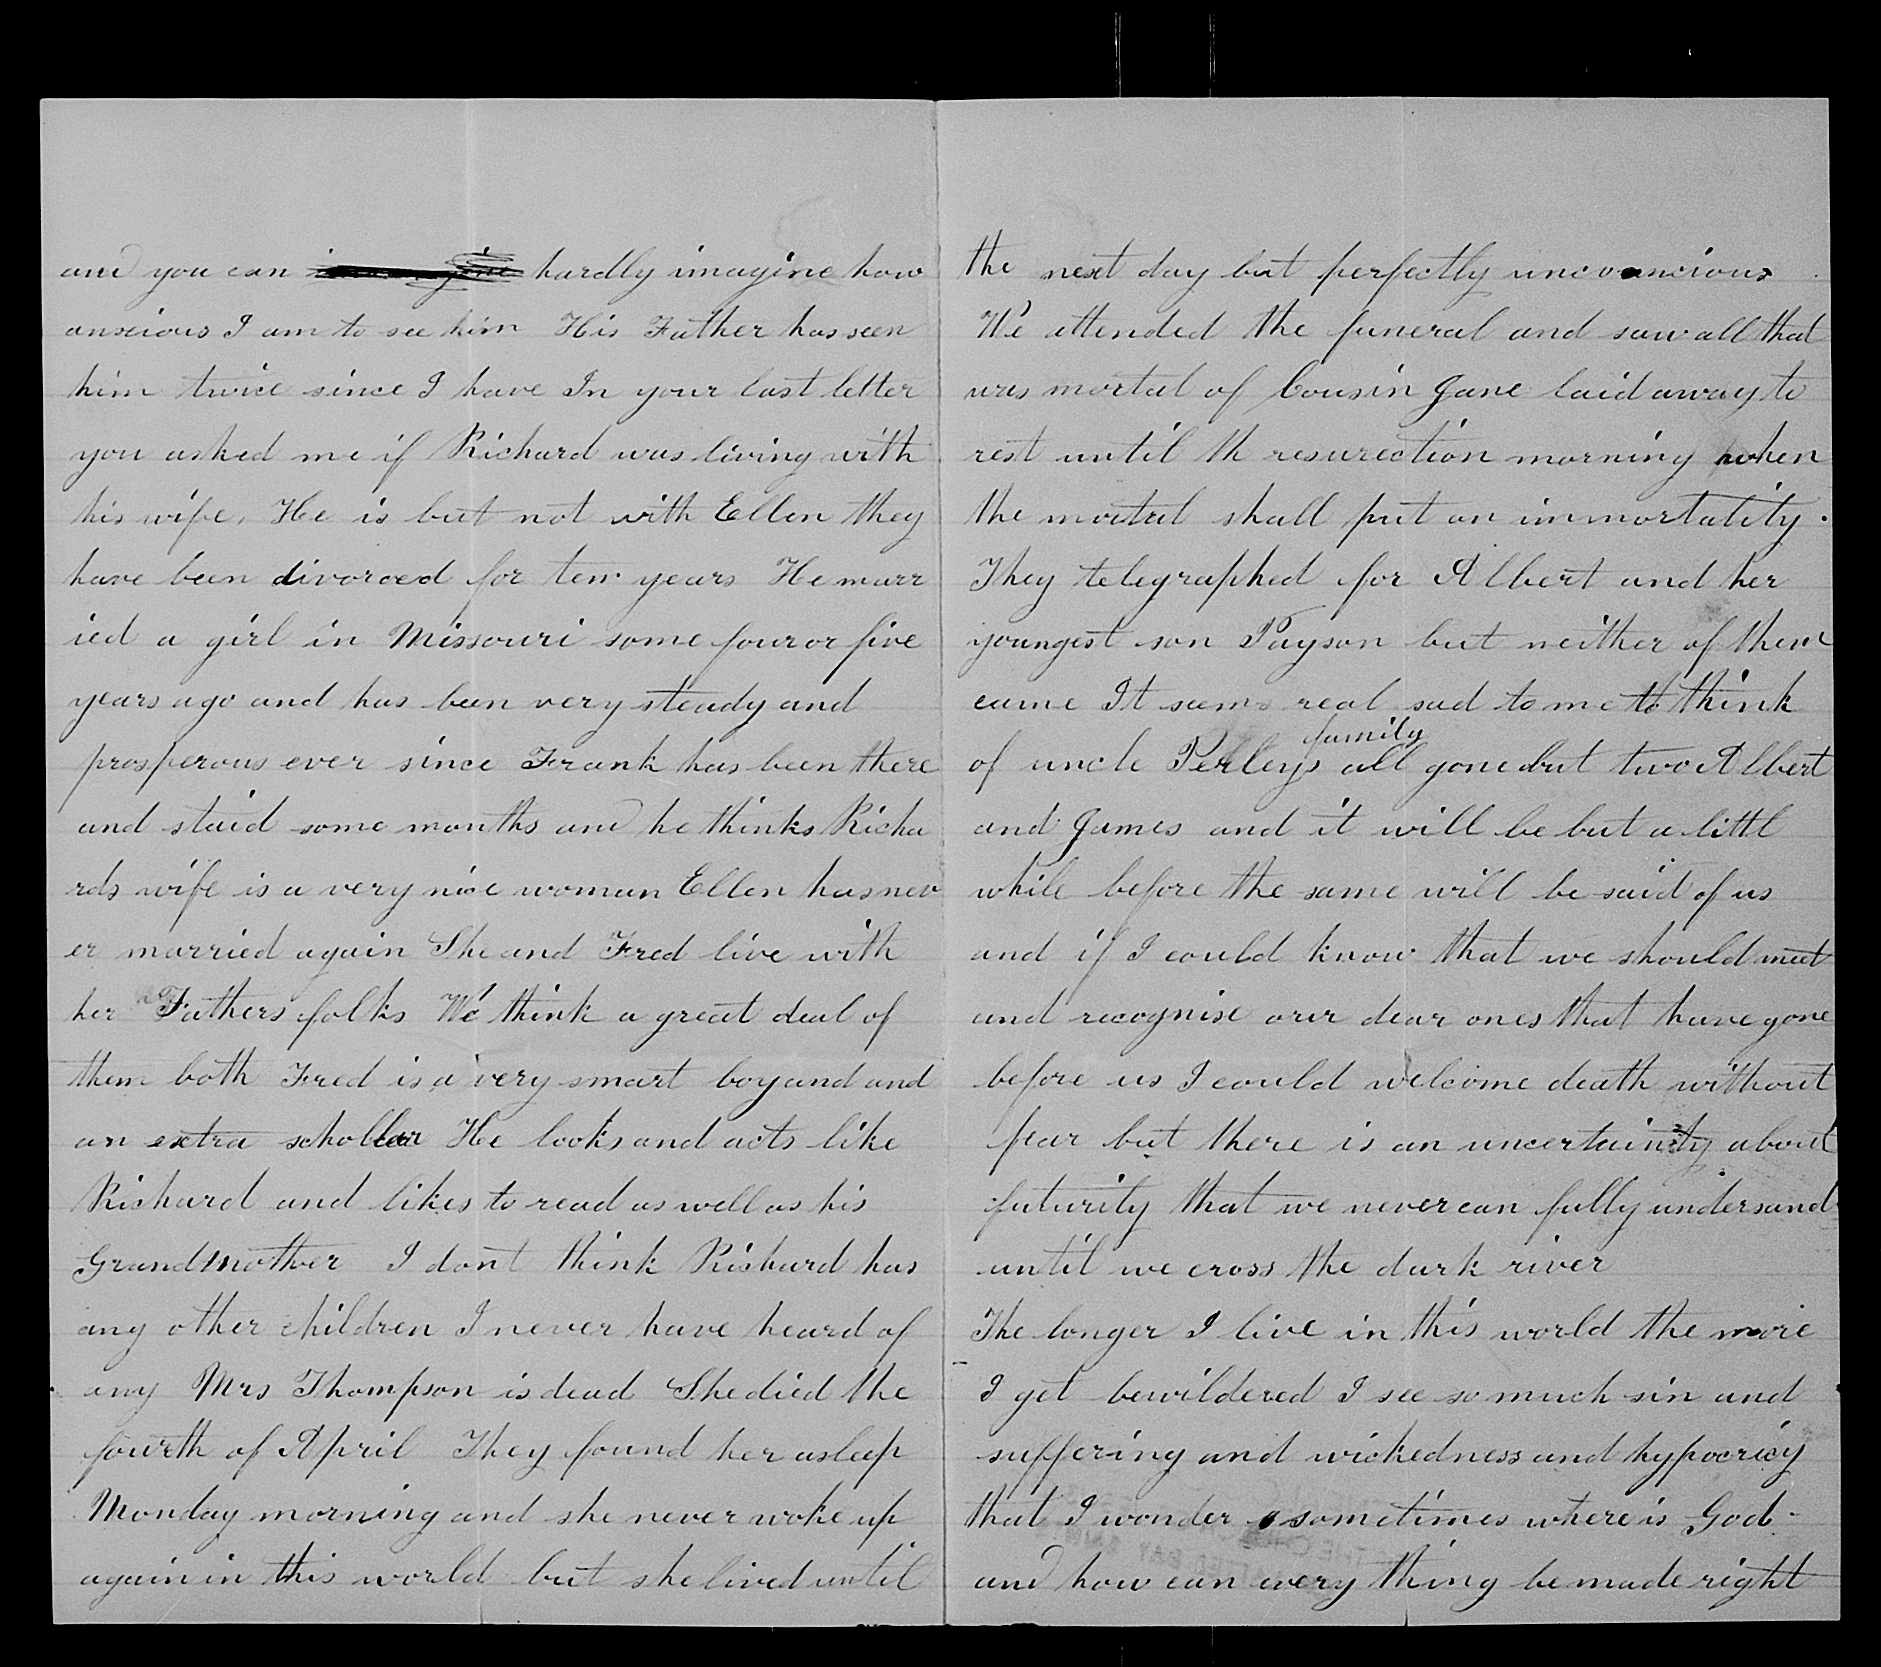 and you can hardly imagine how
anxious I am to see him His Father has seen
him twice since I have In your last letter
you asked me if Richard was living with
his wife. He is but not with Ellen they
have been divorced for ten years He marr
ied a girl in Missouri some four or five
years ago and has been very steady and
prosperous ever since Frank has been there
and staid some months and he thinks Richa
rds wife is a very nice woman Ellen has nev
er married again She and Fred live with
her Fathers folks We think a great deal of
them both Fred is a very smart boy and and
an extra schollar He looks and acts like
Richard and likes to read as well as his
Grandmother I dont think Richard has
any other children I never have heard of
any Mrs Thompson is dead She died the
fourth of April They found her asleep
Monday morning and she never woke up
again in this world but she lived until
the next day but perfectly unconcious
We attended the funeral and saw all that
was mortal of Cousin Jane laid away to
rest until th resurection morning when
the mortal shall put on immortality.
They telegraphed for Albert and her
youngest son Payson but neither of them
came It seems real sad to me to think
family
of uncle Perleys all gone but two Albert
and James and it will be but a littl
while before the same will be said of us
and if I could know that we should meet
and recognise our dear ones that have gone
before us I could welcome death without
fear but there is an uncertainty about
futurity that we never can fully undersand
until we cross the dark river
The longer I live in this world the more
I get bewildered I see so much sin and
suffering and wickedness and hypocricy
that I wonder sometimes where is God
and how can every thing be made right